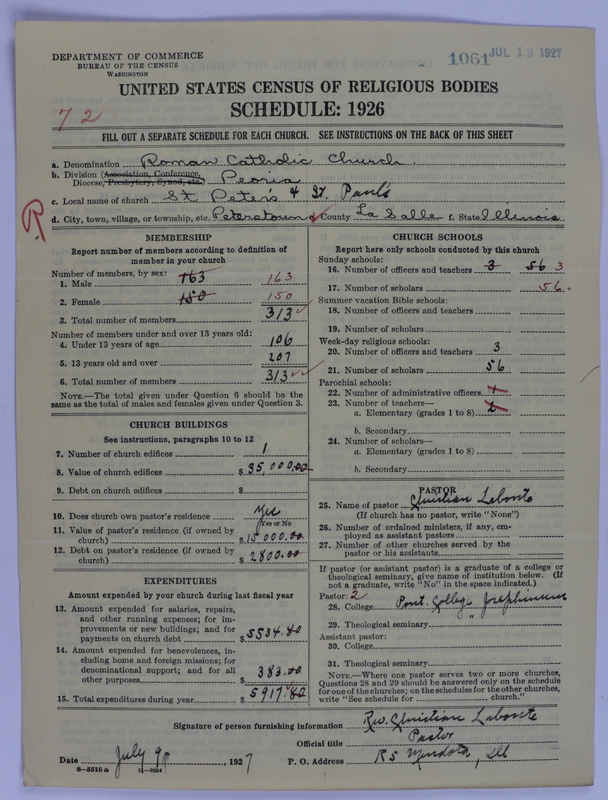 DEPARTMENT OF COMMERCE
BUREAU OF THE CENSUS
WASHINGTON
1061 JUL 13 1927
UNITED STATES CENSUS OF RELIGIOUS BODIES
SCHEDULE: 1926
72
FILL OUT A SEPARATE SCHEDULE FOR EACH CHURCH. SEE INSTRUCTIONS ON THE BACK OF THIS SHEET
a. Denomination Roman Catholic Church
b. Division (Association, Conference,
Diocese, Presbytery, Synod, etc.) Peoria
c. Local name of church St. Peter's & St. Paul's
R
d. City, town, village, or township, etc. Peterstown e. County La Salle f. State Illinois
MEMBERSHIP
Report number of members according to definition of
member in your church
Number of members, by sex:
1. Male 163 163
2. Female 150 150
3. Total number of members 313
Number of members under and over 13 years old:
4. Under 13 years of age 106
5. 13 years old and over 207
6. Total number of members 313
NOTE.—The total given under Question 6 should be
the same as the total of males and females given under Question 3.
CHURCH BUILDINGS
See instructions, paragraphs 10 to 12
7. Number of church edifices 1
8. Value of church edifices $35,000.00
9. Debt on church edifices $
10. Does church own pastor's residence Yes
(Yes or No)
11. Value of pastor's residence (if owned by
church) $15000.00
12. Debt on pastor's residence (if owned by
church) $2800.00
EXPENDITURES
Amount expended by your church during last fiscal year
13. Amount expended for salaries, repairs,
and other running expenses; for im-
provements or new buildings; and for
payments on church debt $5534.80
14. Amount expended for benevolences, in-
cluding home and foreign missions; for
denominational support; and for all
other purposes 383.00
15. Total expenditures during year $5917.80
CHURCH SCHOOLS
Report here only schools conducted by this church
Sunday schools:
16. Number of officers and teachers 3 56 3
17. Number of scholars 56
Summer vacation Bible schools:
18. Number of officers and teachers
19. Number of scholars
Week-day religious schools:
20. Number of officers and teachers 3
21. Number of scholars 56
Parochial schools:
22. Number of administrative officers 1
23. Number of teachers—
a. Elementary (grades 1 to 8) 2
b. Secondary
24. Number of scholars—
a. Elementary (grades 1 to 8)
b. Secondary
PASTOR
25. Name of pastor Christian Labonte
(If church has no pastor, write "None")
26. Number of ordained ministers, if any, em-
ployed as assistant pastors
27. Number of other churches served by the
pastor or his assistants
If pastor (or assistant pastor) is a graduate of a college or
theological seminary, give name of institution below. (If
not a graduate, write "No" in the space indicated.)
Pastor: 2
28. College Pont. College Josephinum
29. Theological seminary "
Assistant pastor:
30. College
31. Theological seminary
NOTE.—Where one pastor serves two or more churches,
Questions 28 and 29 should be answered only on the schedule
for one of the churches; on the schedules for the other churches,
write "See schedule for church."
Signature of person furnishing information Rev. Christian Labonte
Official title Pastor
Date July 9, 1927 P. O. Address R5 Mendota, Ill
8—5516 a 11—9064